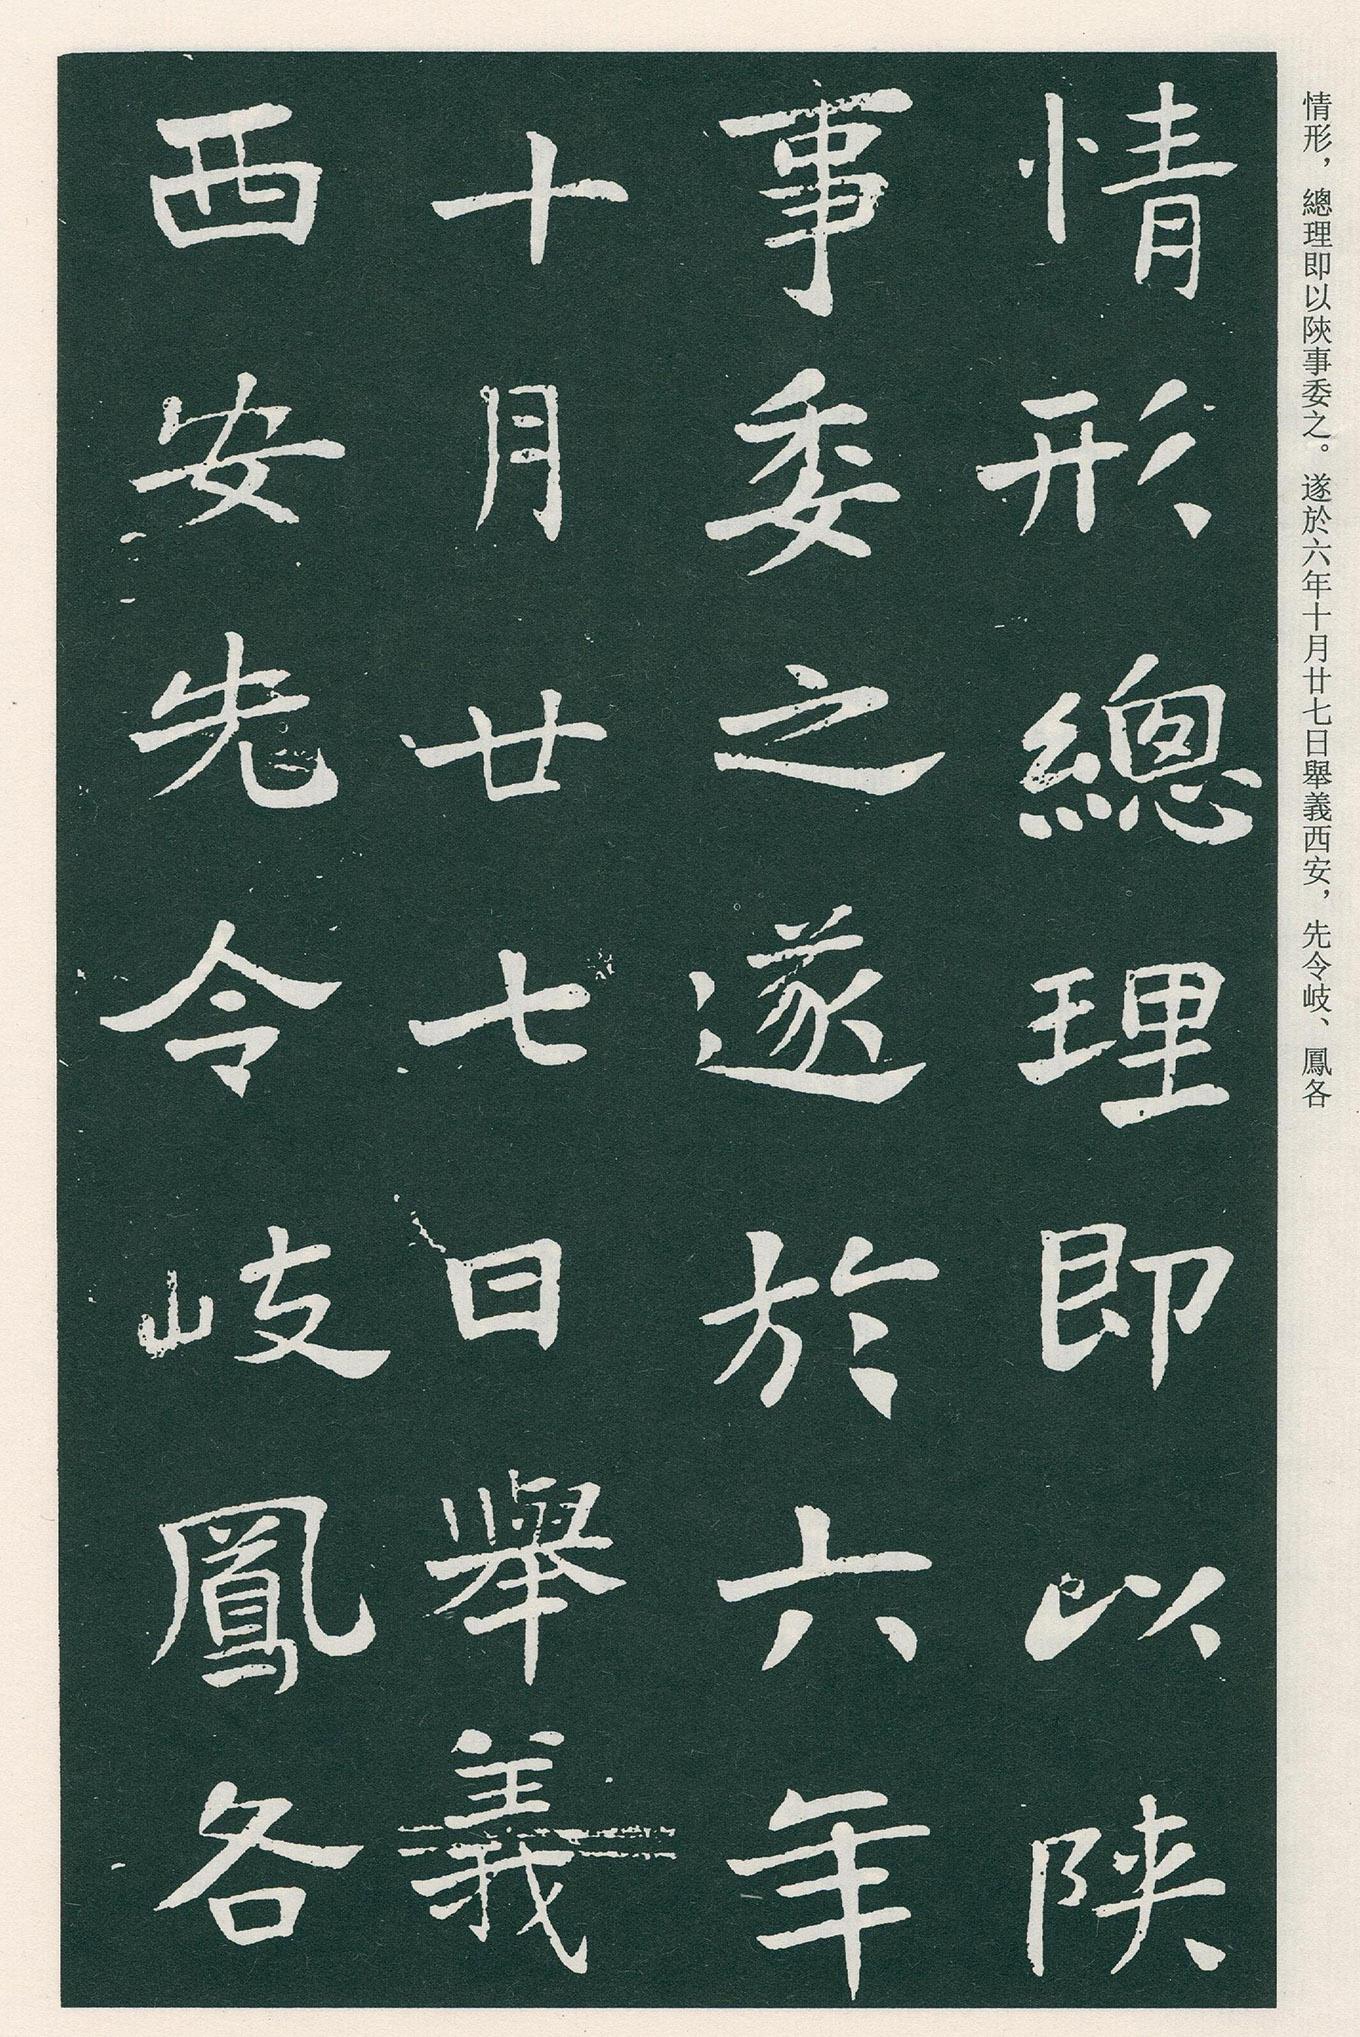 情形，總理即以陝事委之。遂於六年十月廿七日舉義西安，先令岐、鳳各
情形總理即以陝
事委之遂於六年
十月廿七日舉義
西安先令岐鳳各